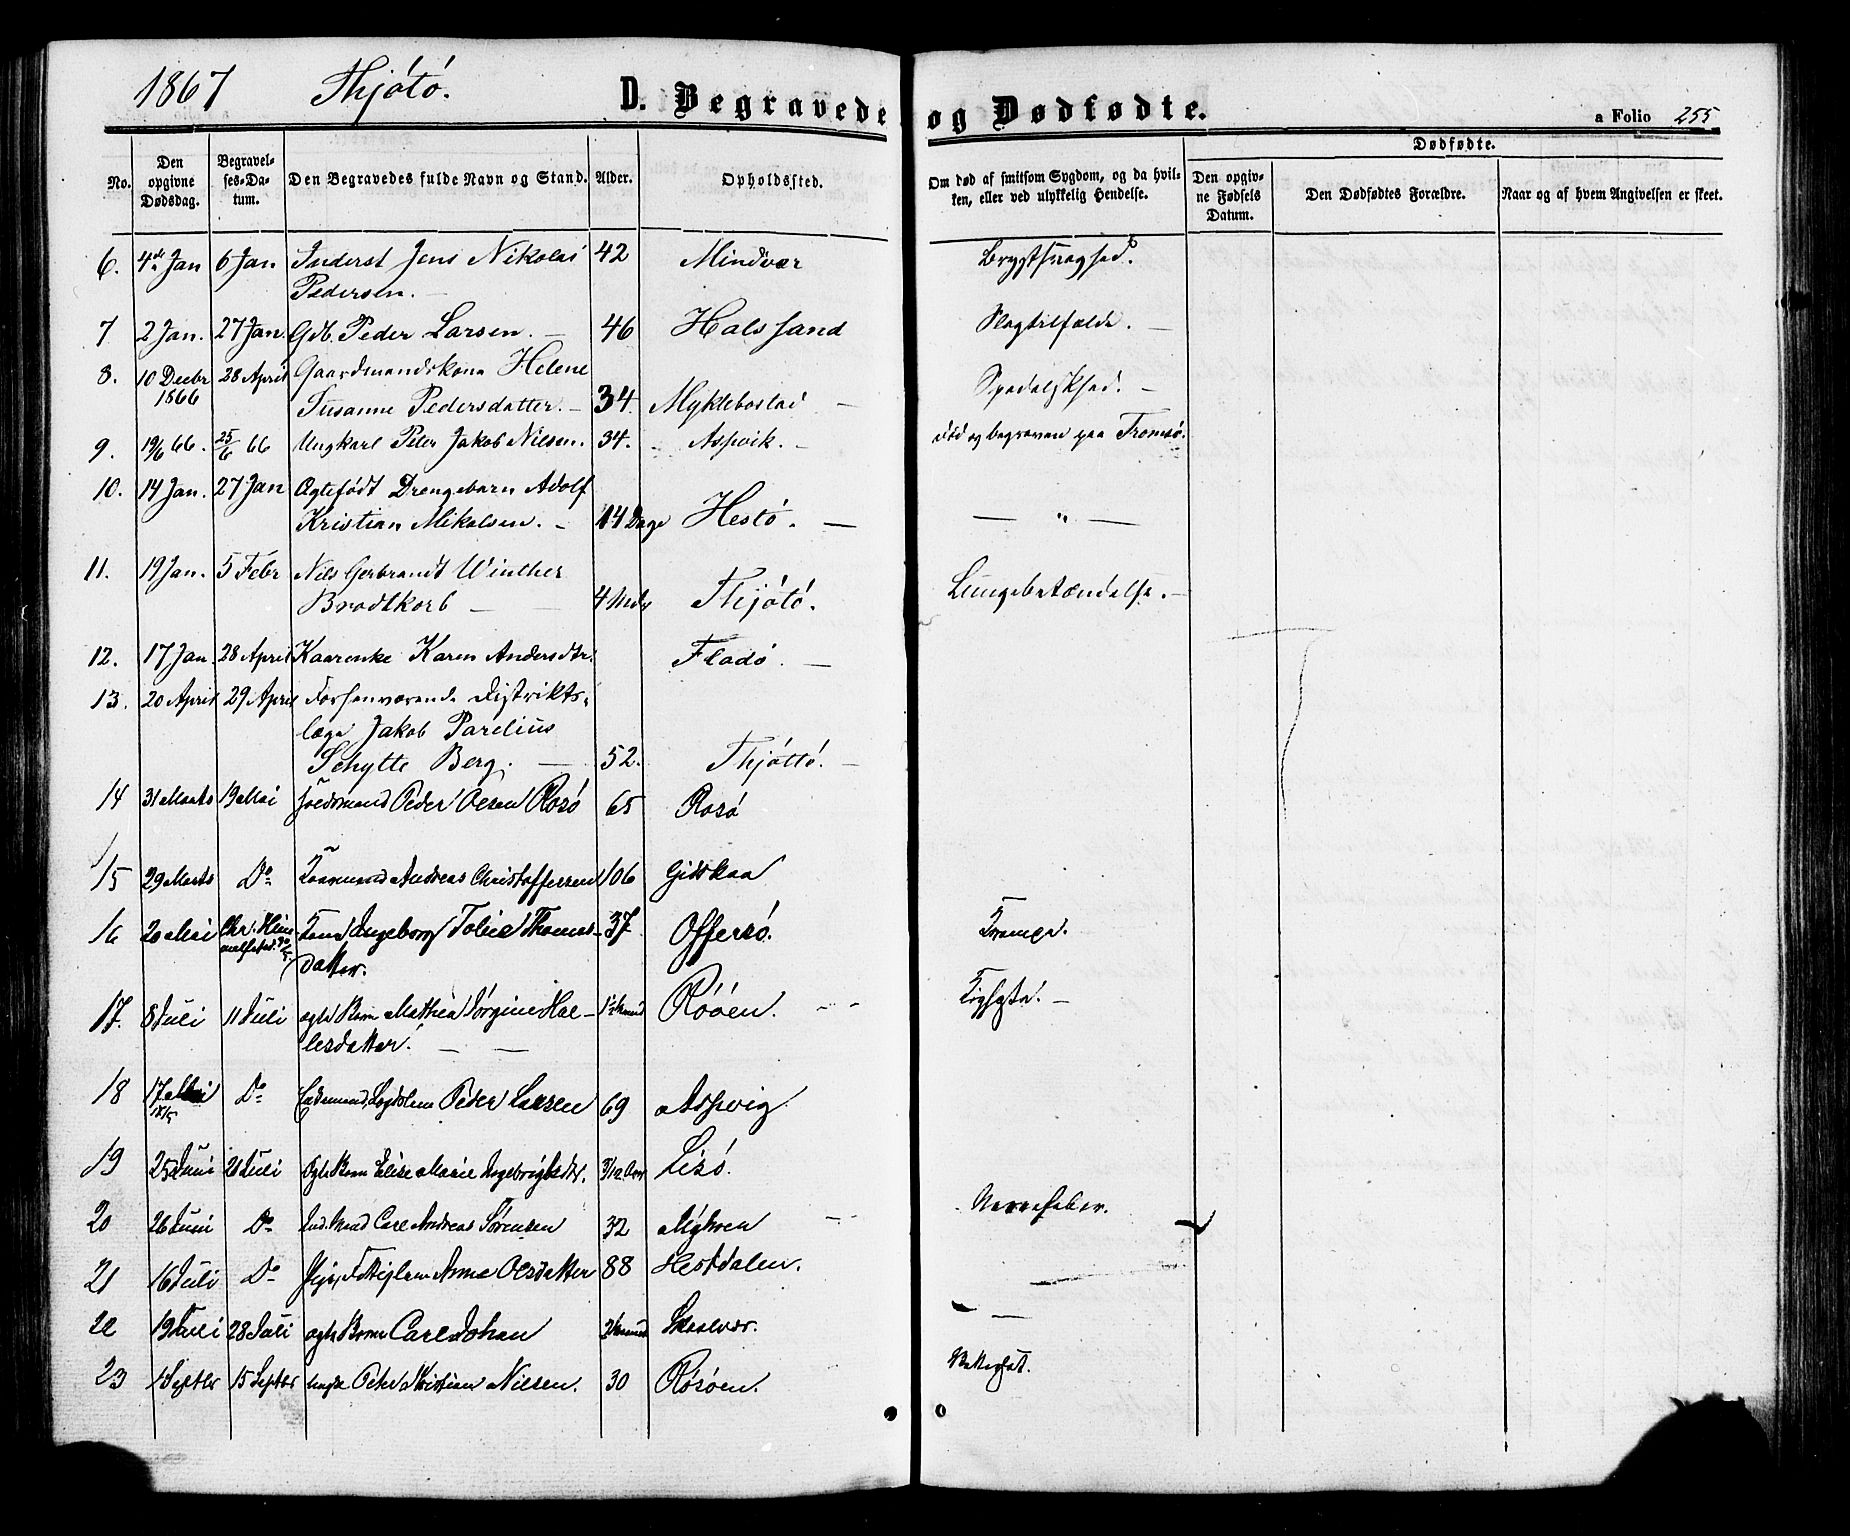 1867 Thjótó. D. Begravede og Dødfødte. a Folio 255
Dødfødte.
No. Den opgivne Dødsdag. Begravelses-Datum. Den Begravedes fulde Navn og Stand. Alder. Opholdssted. Om død af smitsom Sygdom, og da hvilken, eller ved ulykkelig Hendelse. Den opgivne Fødsels Datum. Den Dødfødtes Forældre. Naar og af hvem Angivelsen er skeet.
6. 4de Jan 6 Jan Inderst Jens Nikolai 42 Mindvær Brystsvaghed.
Pedersen. —
7 2 Jan. 27 Jan. Gdb. Peder Larsen. — 46 Hals sand Slagtilfælde. —
8. 10 Decbr 28 April Gaardmandskone Helene
1866 Susanne Pedersdatter. — 34. Myklebostad — Spedalskhed. —
9. 19/6 66. 25/6 66 Ungkarl Peter Jakob Nilsen. 34. Aspvik. — død og begraven paa Tromsø.
10. 14 Jan. 27 Jan Ægtefødt Drengebarn Adolf
Kristian Mikalsen. — 14 Dage Hestó. — — " —
11. 19 Jan. 5 Febr Nils Gerbrandt Winther
Brodtkorb — 4 Mdr Thjótó. Lungebetændelse. —
12. 17 Jan. 28 April Kaarenke Karen Andersdtr. Fladó. —
13. 20 April 29 April Forhenværende Distrikts-
læge Jakob Parelius
Schytte Berg. — 52. Thjóttó. —
14 31 Marts 19 Mai Peder Olsen Rosó 65 Rosó
15 29 Marts Do Andreas Christoffersen 106 Gidskaa
16 20 Mai Kone Ingeborg Tobie Thomas- 37 Offersó. Krampe.
datter.
17. 8 Juli 11 Juli ægte Barn Mathea Jørgine Hal- Róóen. Kighoste. —
lesdatter. — —
18 17 Mai Do Peder Larsen 69 Aspvig
19 25 Juni 21 Juli Ægte Barn Elise Marie Ingebrigtsdtr. Lisó.
20 26 Juni Do Carl Andreas Sørensen 32 Nervefeber.
21 16 Juli Do Anne Olsdatter 88 Hestdalen.
22 19 Juli 28 Juli ægte Barn Carl Johan Skaalvær. —
23 1 Septbr 15 Septbr Peter Kristian Nilsen. 30 Rósóen.